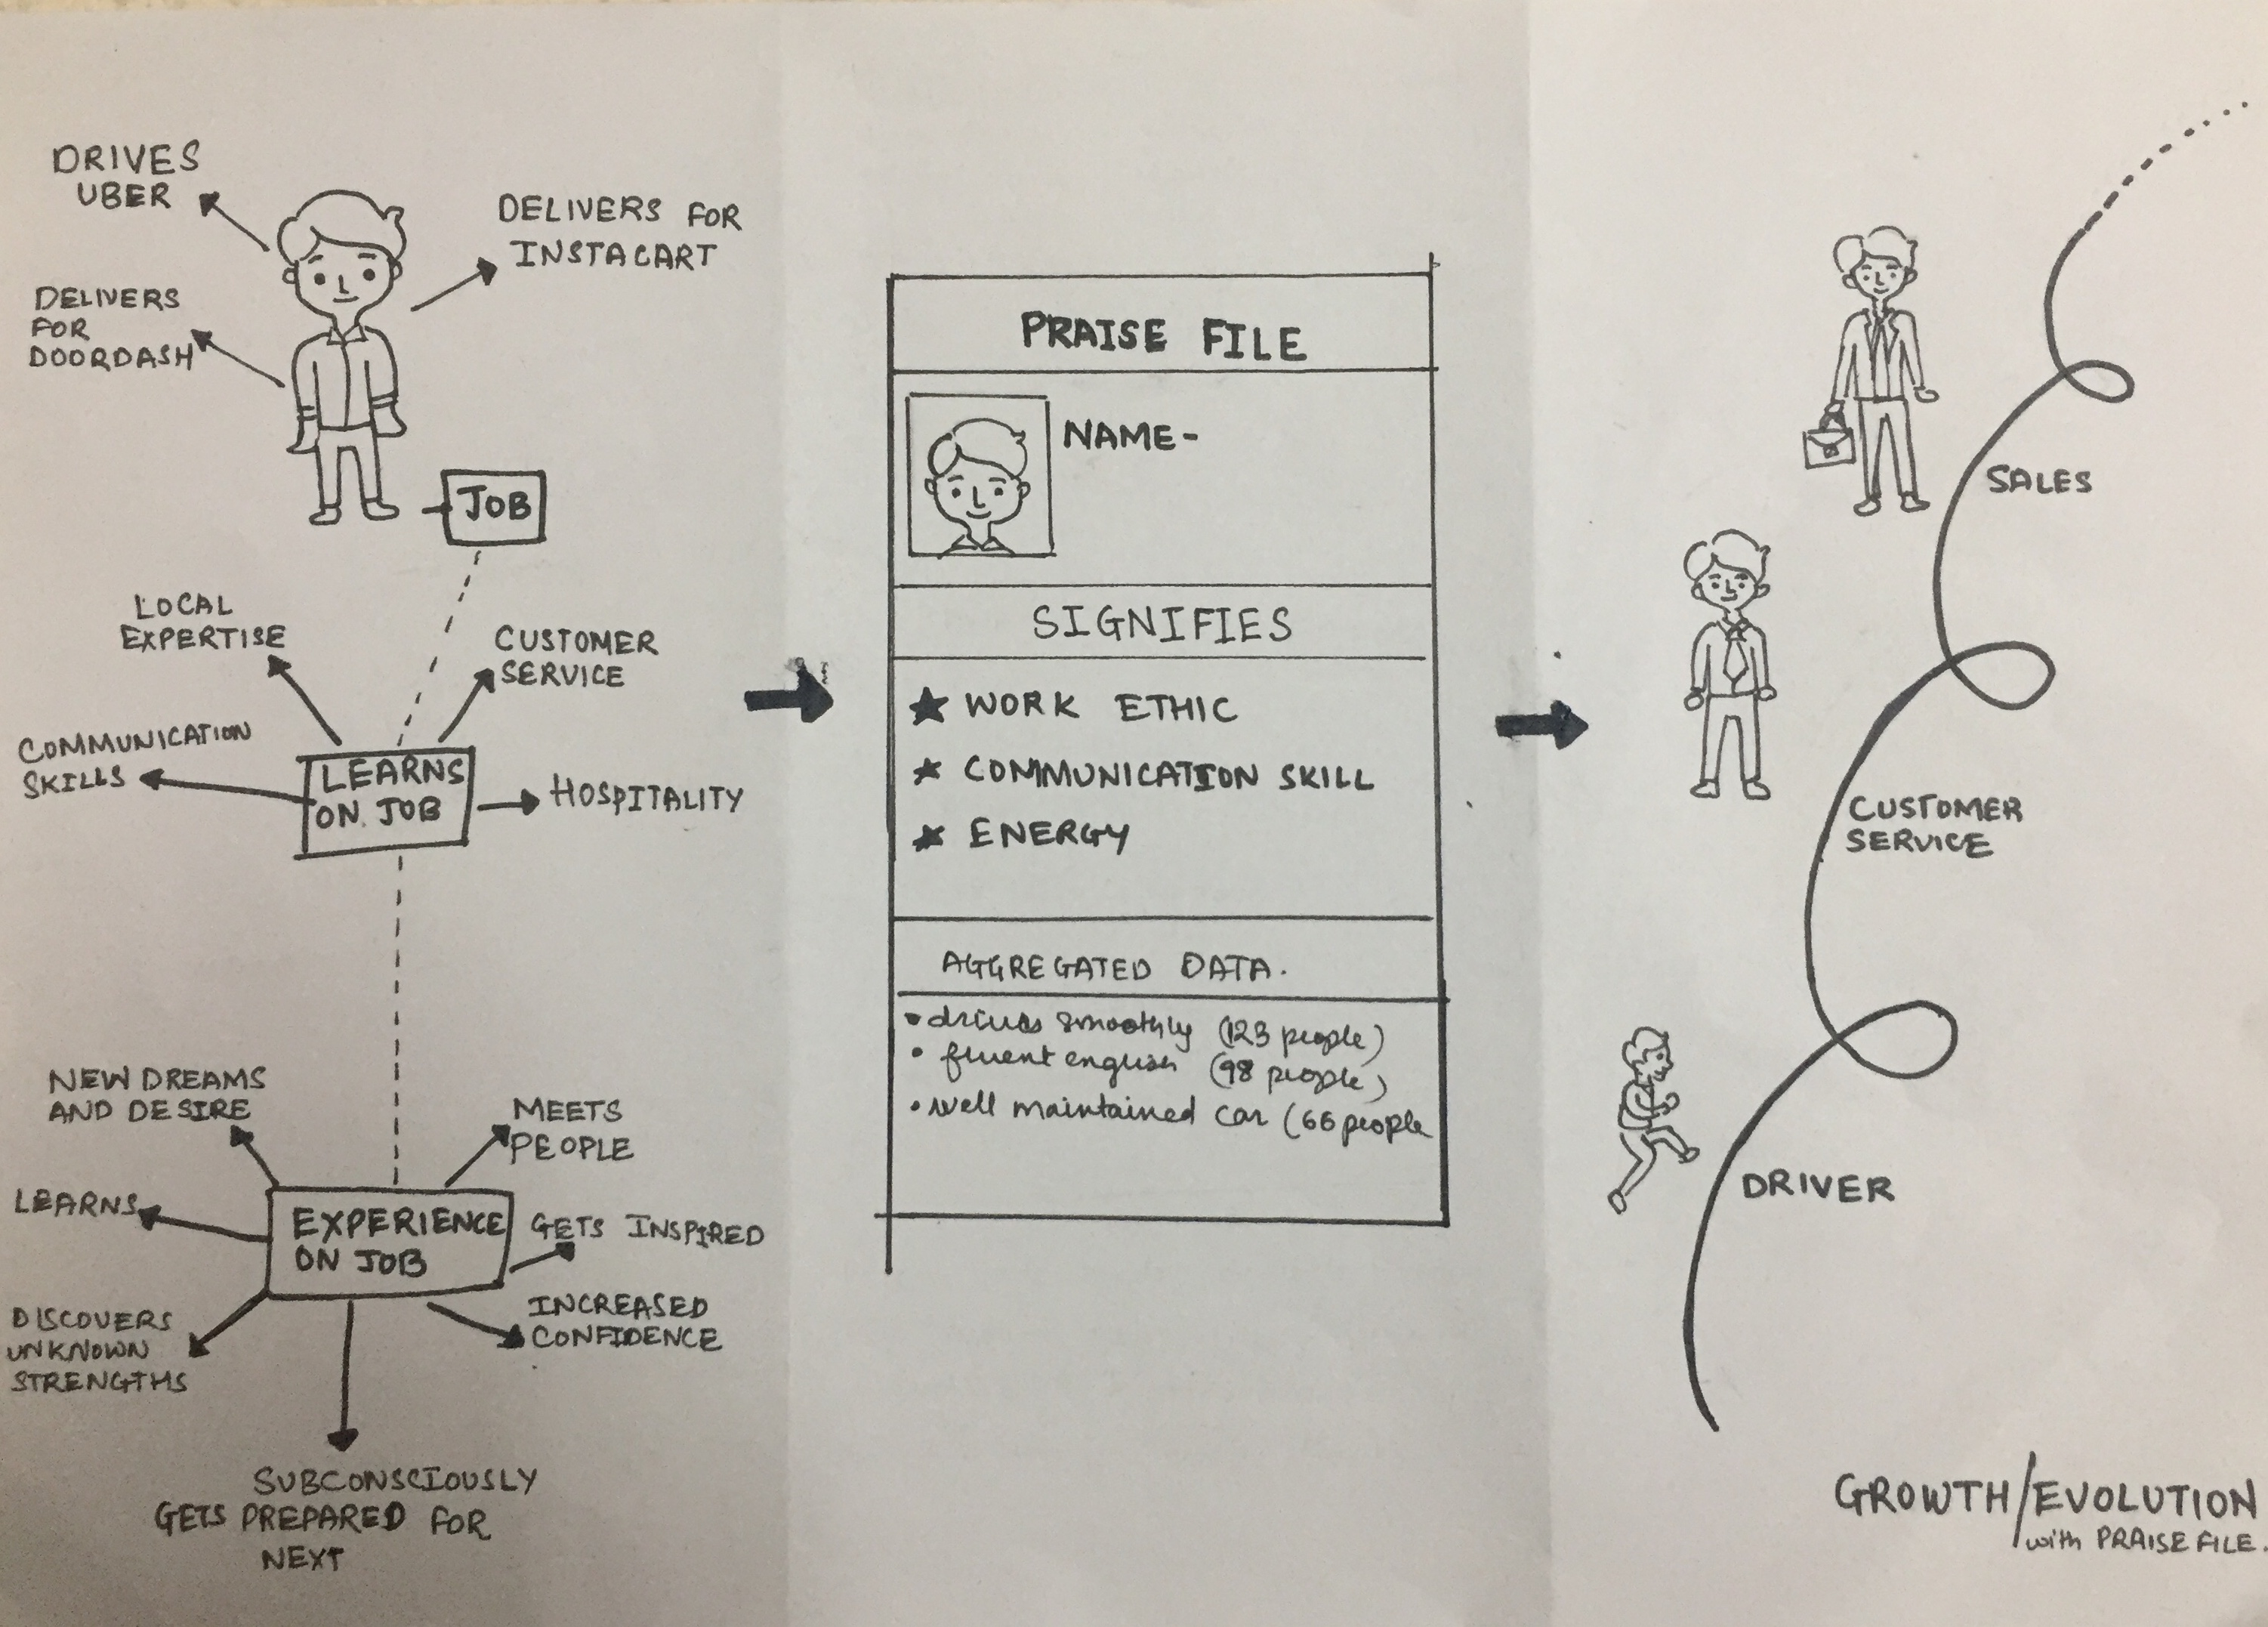 DRIVES
UBER
DELIVERS FOR
INSTACART
DELIVERS
FOR
DOORDASH
JOB
LOCAL
EXPERTISE
CUSTOMER
SERVICE
COMMUNICATION
SKILLS
LEARNS
ON JOB
HOSPITALITY
NEW DREAMS
AND DESIRE
MEETS
PEOPLE
LEARNS
EXPERIENCE
ON JOB
GETS INSPIRED
INCREASED
CONFIDENCE
DISCOVERS
UNKNOWN
STRENGTHS
SUBCONSCIOUSLY
GETS PREPARED FOR
NEXT
PRAISE FILE
NAME-
SIGNIFIES
★ WORK ETHIC
★ COMMUNICATION SKILL
★ ENERGY
AGGREGATED DATA.
• drives smoothly (123 people)
• fluent english (98 people)
• well maintained car (66 people
SALES
CUSTOMER
SERVICE
DRIVER
GROWTH/EVOLUTION
with PRAISE FILE.